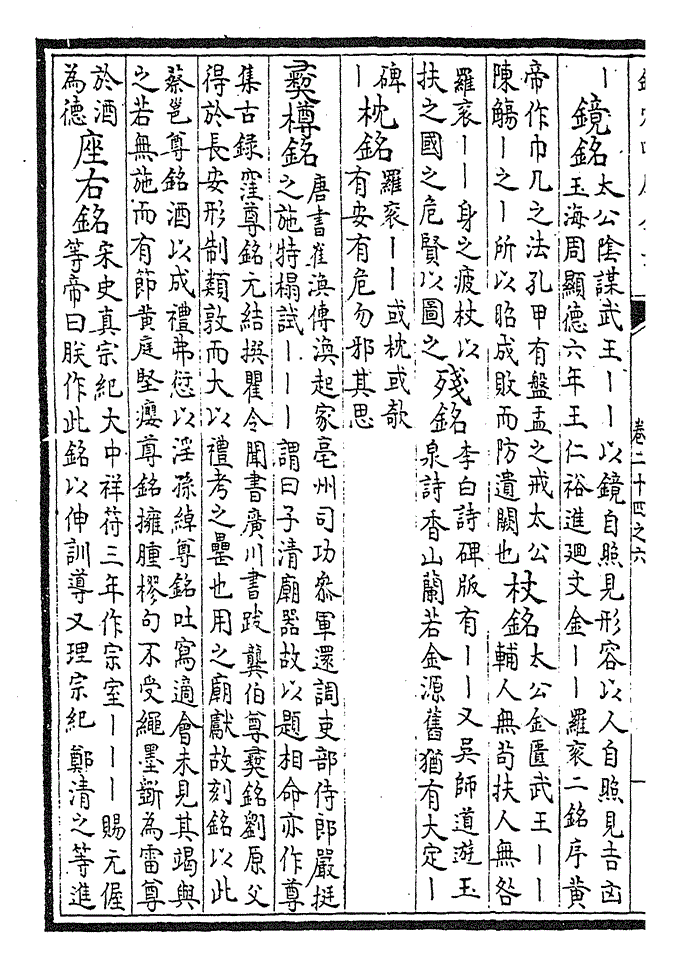 卷二十四之六
丨
鏡銘
太公陰謀武王丨丨以鏡自照見形容以人自照見吉凶
玉海周顯德六年王仁裕進廻文金丨丨羅袞二銘序黃
帝作巾几之法孔甲有盤盂之戒太公
陳觴丨之丨所以昭成敗而防遺闕也
杖銘
太公金匱武王丨丨
輔人無苟扶人無咎
羅袞丨丨身之疲杖以
扶之國之危賢以圖之
殘銘
李白詩碑版有丨丨又吳師道遊玉
泉詩香山蘭若金源舊猶有大定丨
碑
丨
枕銘
羅袞丨丨或枕或欹
有安有危勿邪其思
彝樽銘
唐書崔渙傳渙起家亳州司功叅軍還調吏部侍郎嚴挺
之施特榻試丨丨丨謂曰子清廟器故以題相命亦作尊
集古錄窪尊銘元結撰瞿令聞書廣川書跋龔伯尊彝銘劉原父
得於長安形制類敦而大以禮考之罍也用之廟獻故刻銘以此
蔡邕尊銘酒以成禮弗愆以淫孫綽尊銘吐寫適會未見其竭與
之若無施而有節黃庭堅癭尊銘擁腫樛句不受繩墨斲為雷尊
於酒
為德
座右銘
宋史真宗紀大中祥符三年作宗室丨丨丨賜元偓
等帝曰朕作此銘以伸訓導又理宗紀鄭清之等進